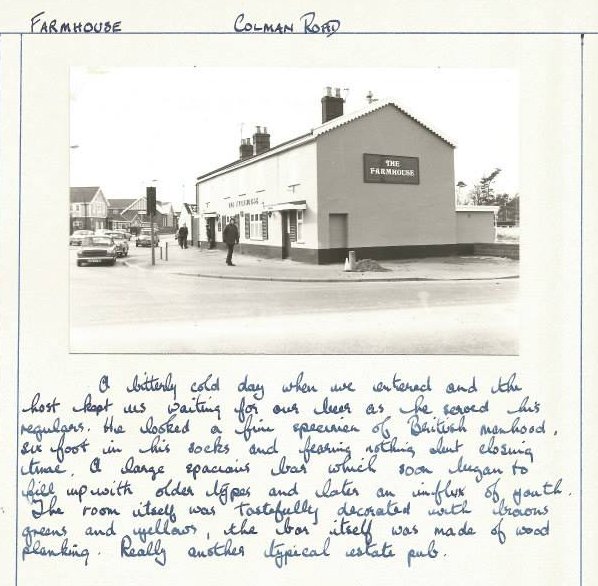 FARMHOUSE COLMAN ROAD
THE
FARMHOUSE
THE FARMHOUSE
A bitterly cold day when we entered and the
host kept us waiting for our beer as he served his
regulars. He looked a fine specimen of British manhood,
six foot in his socks and fearing nothing but closing
time. A large spacious bar which soon began to
fill up with older types and later an influx of youth.
The room itself was tastefully decorated with browns
greens and yellows, the bar itself was made of wood
planking. Really another typical estate pub.